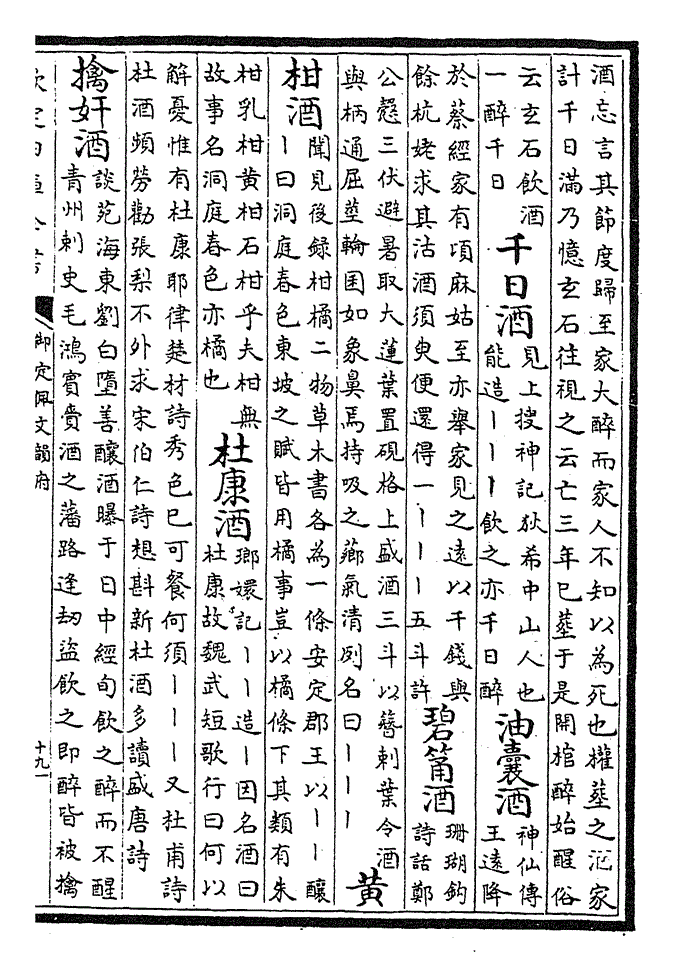 酒忘言其節度歸至家大醉而家人不知以為死也權葬之酒家
計千日滿乃憶玄石往視之云亡三年已葬于是開棺醉始醒俗
云玄石飲酒
一醉千日
千日酒
見上搜神記狄希中山人也
能造丨丨丨飲之亦千日醉
油囊酒
神仙傳
王遠降
於蔡經家有頃麻姑至亦舉家見之遠以千錢與
餘杭姥求其沽酒須臾便還得一丨丨丨五斗許
碧筩酒
珊瑚鈎
詩話鄭
公慤三伏避暑取大蓮葉置硯格上盛酒三斗以簪刺葉令酒
與柄通屈莖輪囷如象鼻焉持吸之薌氣清冽名曰丨丨丨
黄
柑酒
聞見後録柑橘二物草木書各為一條安定郡王以丨丨釀
丨曰洞庭春色東坡之賦皆用橘事豈以橘條下其類有朱
柑乳柑黄柑石柑乎夫柑無
故事名洞庭春色亦橘也
杜康酒
瑯嬛記丨丨造丨因名酒曰
杜康故魏武短歌行曰何以
解憂惟有杜康耶律楚材詩秀色已可餐何須丨丨丨又杜甫詩
杜酒頻勞勸張梨不外求宋伯仁詩想斟新杜酒多讀盛唐詩
擒奸酒
談苑海東劉白墮善釀酒曝于日中經旬飲之醉而不醒
青州刺史毛鴻賓賫酒之藩路逢刼盜飲之即醉皆被擒
欽定四庫全書
御定佩文韻府